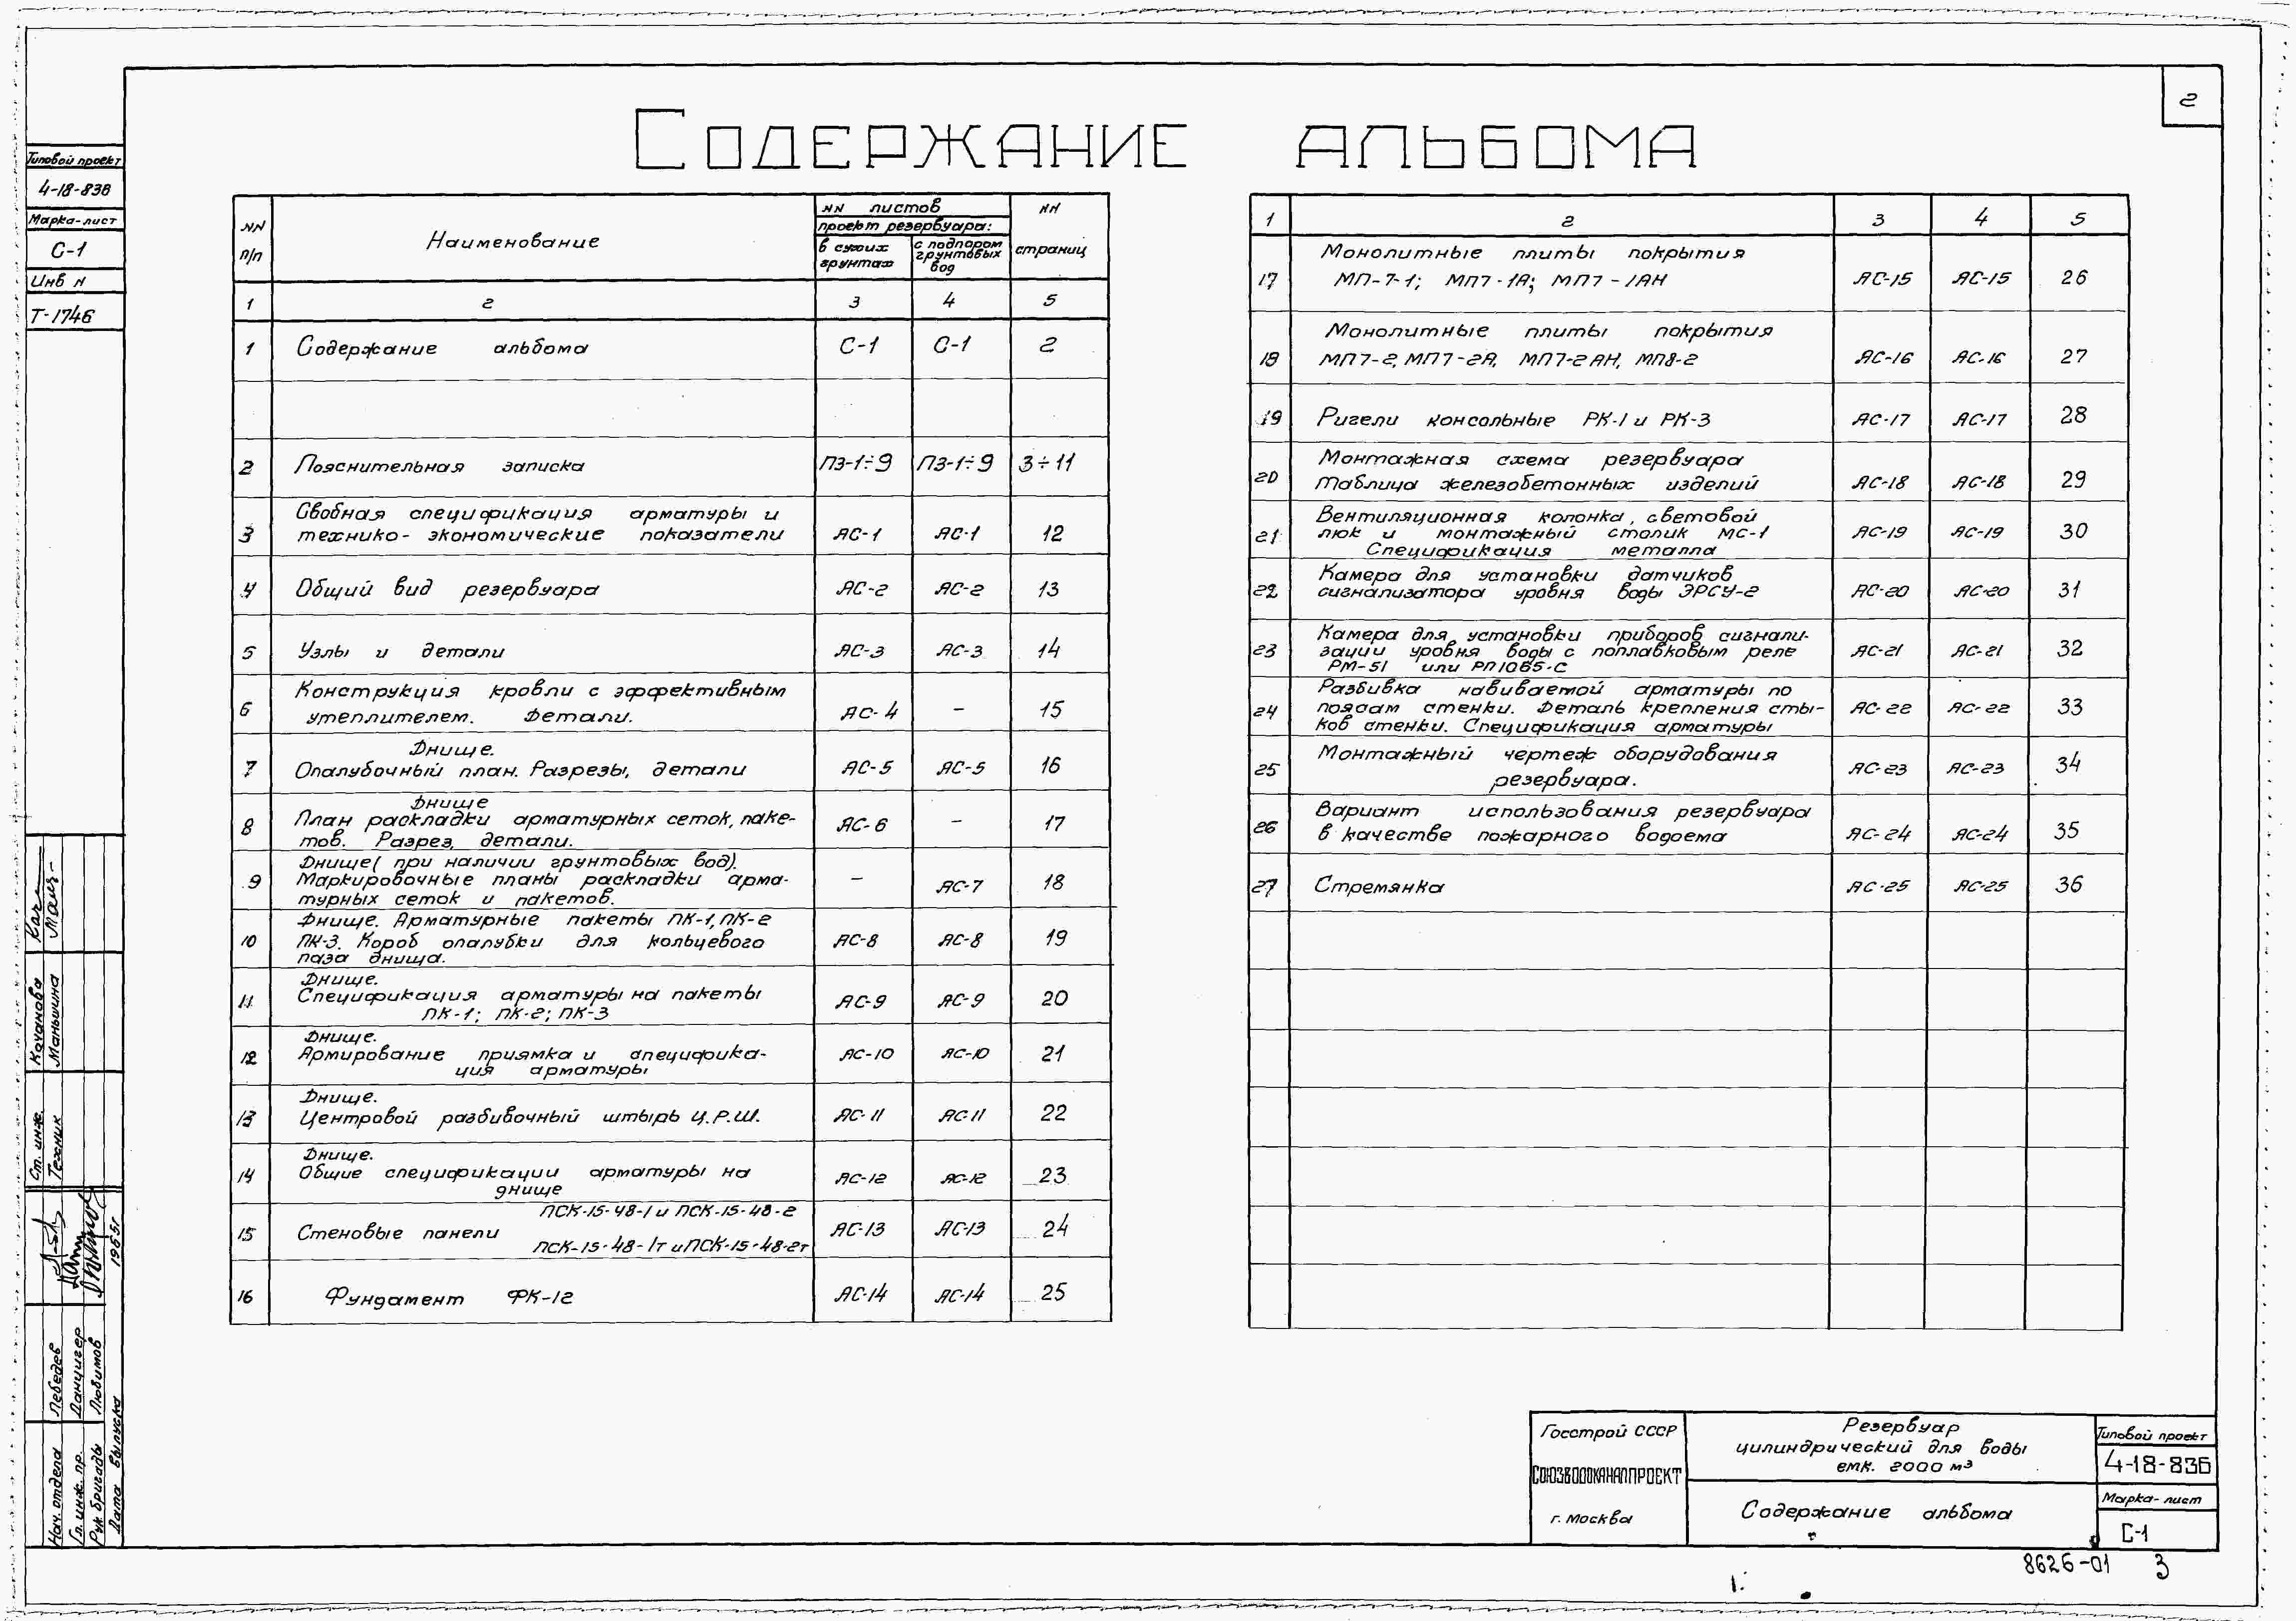 2
Содержание альбома
Типовой проект
4-18-836
Марка-лист
С-1
Инв N
Т-1746
NN п/п
Наименование
NN листов
проект резервуара:
в сухих грунтах
с подпором грунтовых вод
NN страниц
1 2 3 4 5
1 Содержание альбома С-1 С-1 2
2 Пояснительная записка ПЗ-1÷9 ПЗ-1÷9 3÷11
Сводная спецификация арматуры и
3 технико-экономические показатели АС-1 АС-1 12
4 Общий вид резервуара АС-2 АС-2 13
5 Узлы и детали АС-3 АС-3 14
Конструкция кровли с эффективным
6 утеплителем. Детали. АС-4 – 15
Днище.
7 Опалубочный план. Разрезы, детали АС-5 АС-5 16
Днище
8 План раскладки арматурных сеток, паке- АС-6 – 17
тов. Разрез, детали.
Днище (при наличии грунтовых вод).
9 Маркировочные планы раскладки арма- – АС-7 18
турных сеток и пакетов.
Днище. Арматурные пакеты ПК-1, ПК-2
10 ПК-3. Короб опалубки для кольцевого АС-8 АС-8 19
паза днища.
Днище.
11 Спецификация арматуры на пакеты АС-9 АС-9 20
ПК-1; ПК-2; ПК-3
Днище.
12 Армирование приямка и специфика- АС-10 АС-10 21
ция арматуры
Днище.
13 Центровой разбивочный штырь Ц.Р.Ш. АС-11 АС-11 22
Днище.
14 Общие спецификации арматуры на АС-12 АС-12 23
днище
ПСК-15-48-1 и ПСК-15-48-2
15 Стеновые панели АС-13 АС-13 24
ПСК-15-48-1т и ПСК-15-48-2т
16 Фундамент ФК-12 АС-14 АС-14 25
1 2 3 4 5
Монолитные плиты покрытия
17 МП-7-1; МП7-1А; МП7-1АН АС-15 АС-15 26
Монолитные плиты покрытия
18 МП7-2, МП7-2А, МП7-2АН, МП8-2 АС-16 АС-16 27
19 Ригели консольные РК-1 и РК-3 АС-17 АС-17 28
Монтажная схема резервуара
20 Таблица железобетонных изделий АС-18 АС-18 29
Вентиляционная колонка, световой
21 люк и монтажный столик МС-1 АС-19 АС-19 30
Спецификация металла
Камера для установки датчиков
22 сигнализатора уровня воды ЭРСУ-2 АС-20 АС-20 31
Камера для установки приборов сигнали-
23 зации уровня воды с поплавковым реле АС-21 АС-21 32
РМ-51 или РП1065-С
Разбивка навиваемой арматуры по
24 поясам стенки. Деталь крепления сты- АС-22 АС-22 33
ков стенки. Спецификация арматуры
Монтажный чертеж оборудования
25 резервуара. АС-23 АС-23 34
Вариант использования резервуара
26 в качестве пожарного водоема АС-24 АС-24 35
27 Стремянка АС-25 АС-25 36
Ст. инж. Качанова
Техник Маньшина
Нач. отдела Лебедев
Гл. инж. пр. Данцигер
Рук. бригады Любимов
Дата выпуска 1965г
Госстрой СССР
СОЮЗВОДОКАНАЛПРОЕКТ
г. Москва
Резервуар
цилиндрический для воды
емк. 2000 м³
Содержание альбома
Типовой проект
4-18-836
Марка-лист
С-1
8626-01 3